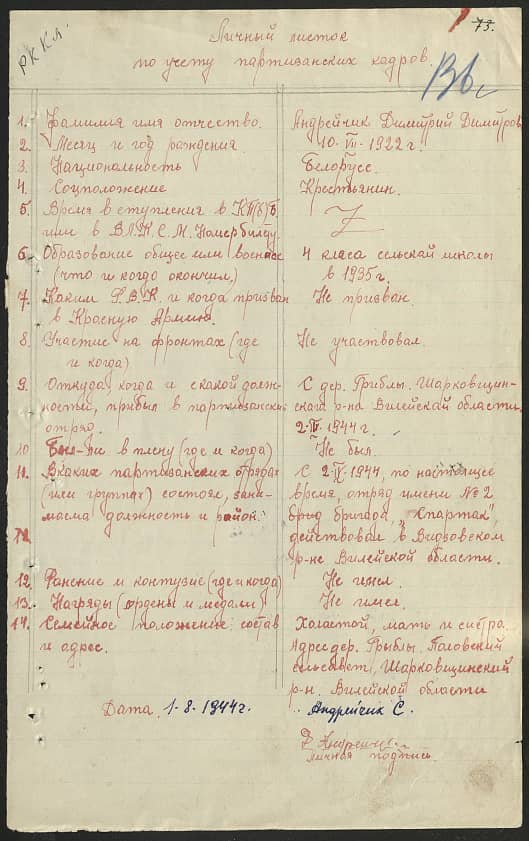 РККл.
73.
Личный листок
по учету партизанских кадров.
1. Фамилия имя отчество. Андрейчик Димитрий Димитров
2. Месяц и год рождения. 10-VII-1922 г.
3. Национальность Белорусс.
4. Соцположение Крестьянин.
5. Время вступления в КП(б)Б
или в ВЛКСМ. Номер билету.
6. Образование общее или военное 4 класа сельской школы
(что и когда окончил.) в 1935 г.
7. Каким Р.В.К. и когда призван Не призван.
в Красную Армию.
8. Участие на фронтах (где Не участвовал.
и когда)
9. Откуда, когда и с какой долж- С дер. Грыблы. Шарковщин-
ностью, прибыл в партизанский скага р-на Вилейской области.
отряд. 2-IV-1944 г.
10 Был-ли в плену (где и когда) Не был.
11. В каких партизанских отрядах С 2-IV-1944, по настоящее
(или группах) состоял, зани- время, отряд имени №2
маема должность и район. бригада, „Спартак",
11. действовал в Видзовском
р-не Вилейской области.
12. Ранение и контузие (где и когда) Не имел.
13. Награды (ордены и медали) Не имел.
14. Семейное положение: состав Холастой, мать и систра.
и адрес. Адрес дер. Грыблы. Паловский
сельсавет, Шарковщинский
р-н. Вилейской области
Дата. 1-8-1944 г. Андрейчик С.
личная подпись.